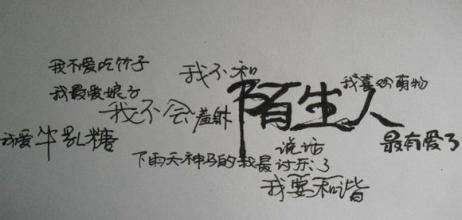 我不爱吃竹子
我不和
我最爱娘子
我喜欢萌物
我不会
陌生人
我爱牛乳糖
说话
最有爱了
下雨天神马的我最讨厌了
我要和谐